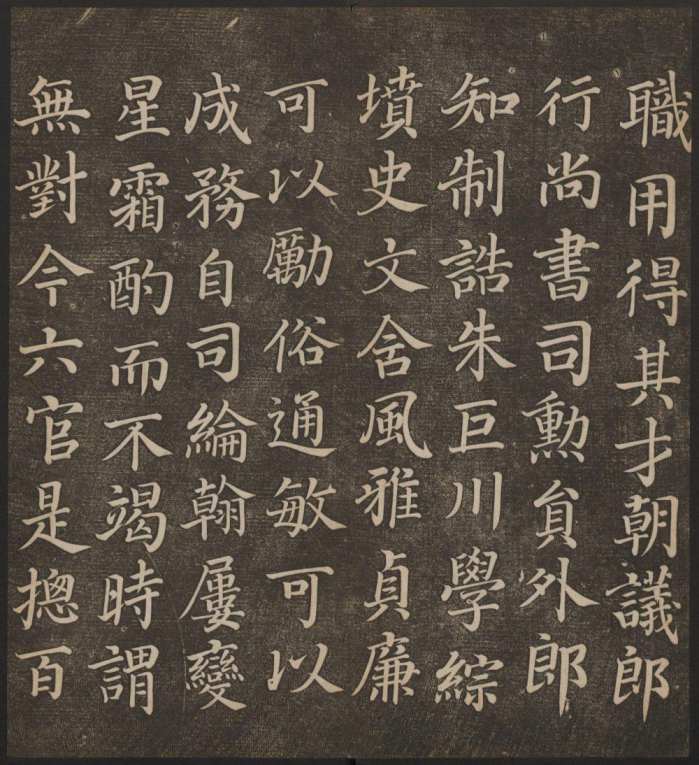 職用得其才朝議郎
行尚書司勳貟外郎
知制誥朱巨川學綜
墳史文含風雅貞廉
可以勵俗通敏可以
成務自司綸翰屢變
星霜酌而不竭時謂
無對今六官是摠百